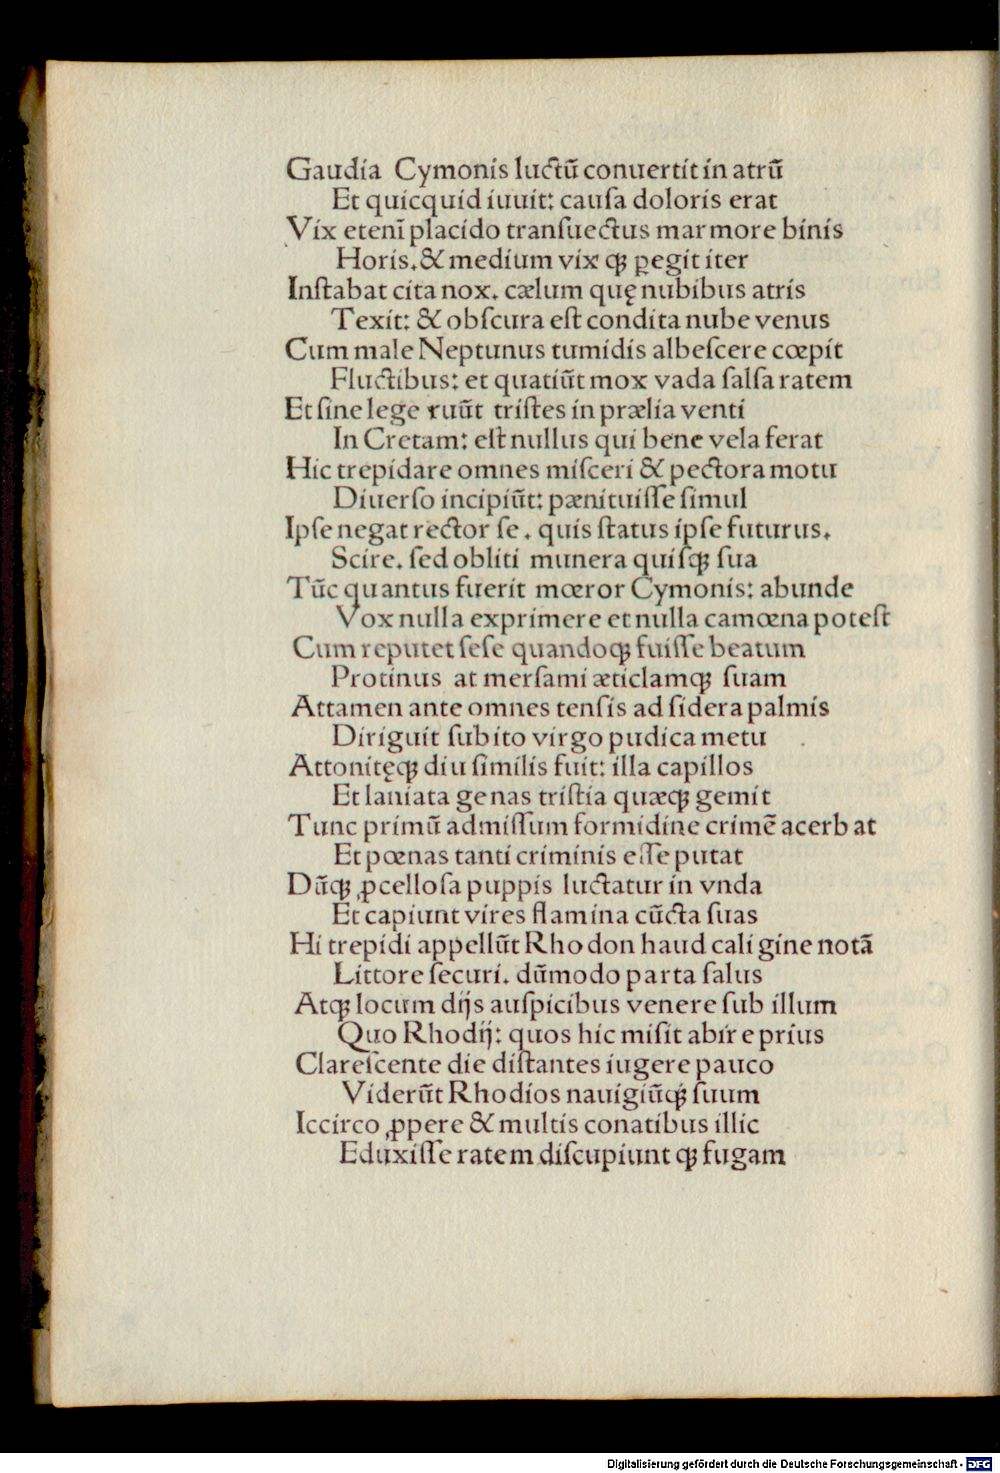 Gaudia Cymonis luctū conuertit in atrū
Et quicquid iuuit: cauſa doloris erat
Vix etenī placido tranſuectus marmore binis
Horis.& medium vix qꝫ ꝑegit iter
Inſtabat cita nox. cælum quę nubibus atris
Texit: & obſcura eſt condita nube venus
Cum male Neptunus tumidis albeſcere cœpit
Fluctibus: et quatiūt mox vada ſalſa ratem
Et ſine lege ruūt triſtes in prælia venti
In Cretam: eſt nullus qui bene vela ferat
Hic trepidare omnes miſceri & pectora motu
Diuerſo incipiūt: pænituiſſe ſimul
Ipſe negat rector ſe. quis ſtatus ipſe futurus.
Scire. ſed obliti munera quiſqꝫ ſua
Tūc quantus fuerit mœror Cymonis: abunde
Vox nulla exprimere et nulla camœna poteſt
Cum reputet ſeſe quandoqꝫ fuiſſe beatum
Protinus at merſam iæticlamqꝫ ſuam
Attamen ante omnes tenſis ad ſidera palmis
Diriguit ſubito virgo pudica metu
Attonitęqꝫ diu ſimilis fuit: illa capillos
Et laniata genas triſtia quæqꝫ gemit
Tunc primū admiſſum formidine crimē acerbat
Et pœnas tanti criminis eſſe putat
Dūqꝫ ꝓcelloſa puppis luctatur in vnda
Et capiunt vires flamina cūcta ſuas
Hi trepidi appellūt Rhodon haud caligine notā
Littore ſecuri. dūmodo parta ſalus
Atqꝫ locum dijs auſpicibus venere ſub illum
Quo Rhodij: quos hic miſit abire prius
Clareſcente die diſtantes iugere pauco
Viderūt Rhodios nauigiūqꝫ ſuum
Iccirco ꝓpere & multis conatibus illic
Eduxiſſe ratem diſcupiunt qꝫ fugam
Digitalisierung gefördert durch die Deutsche Forschungsgemeinschaft - DFG